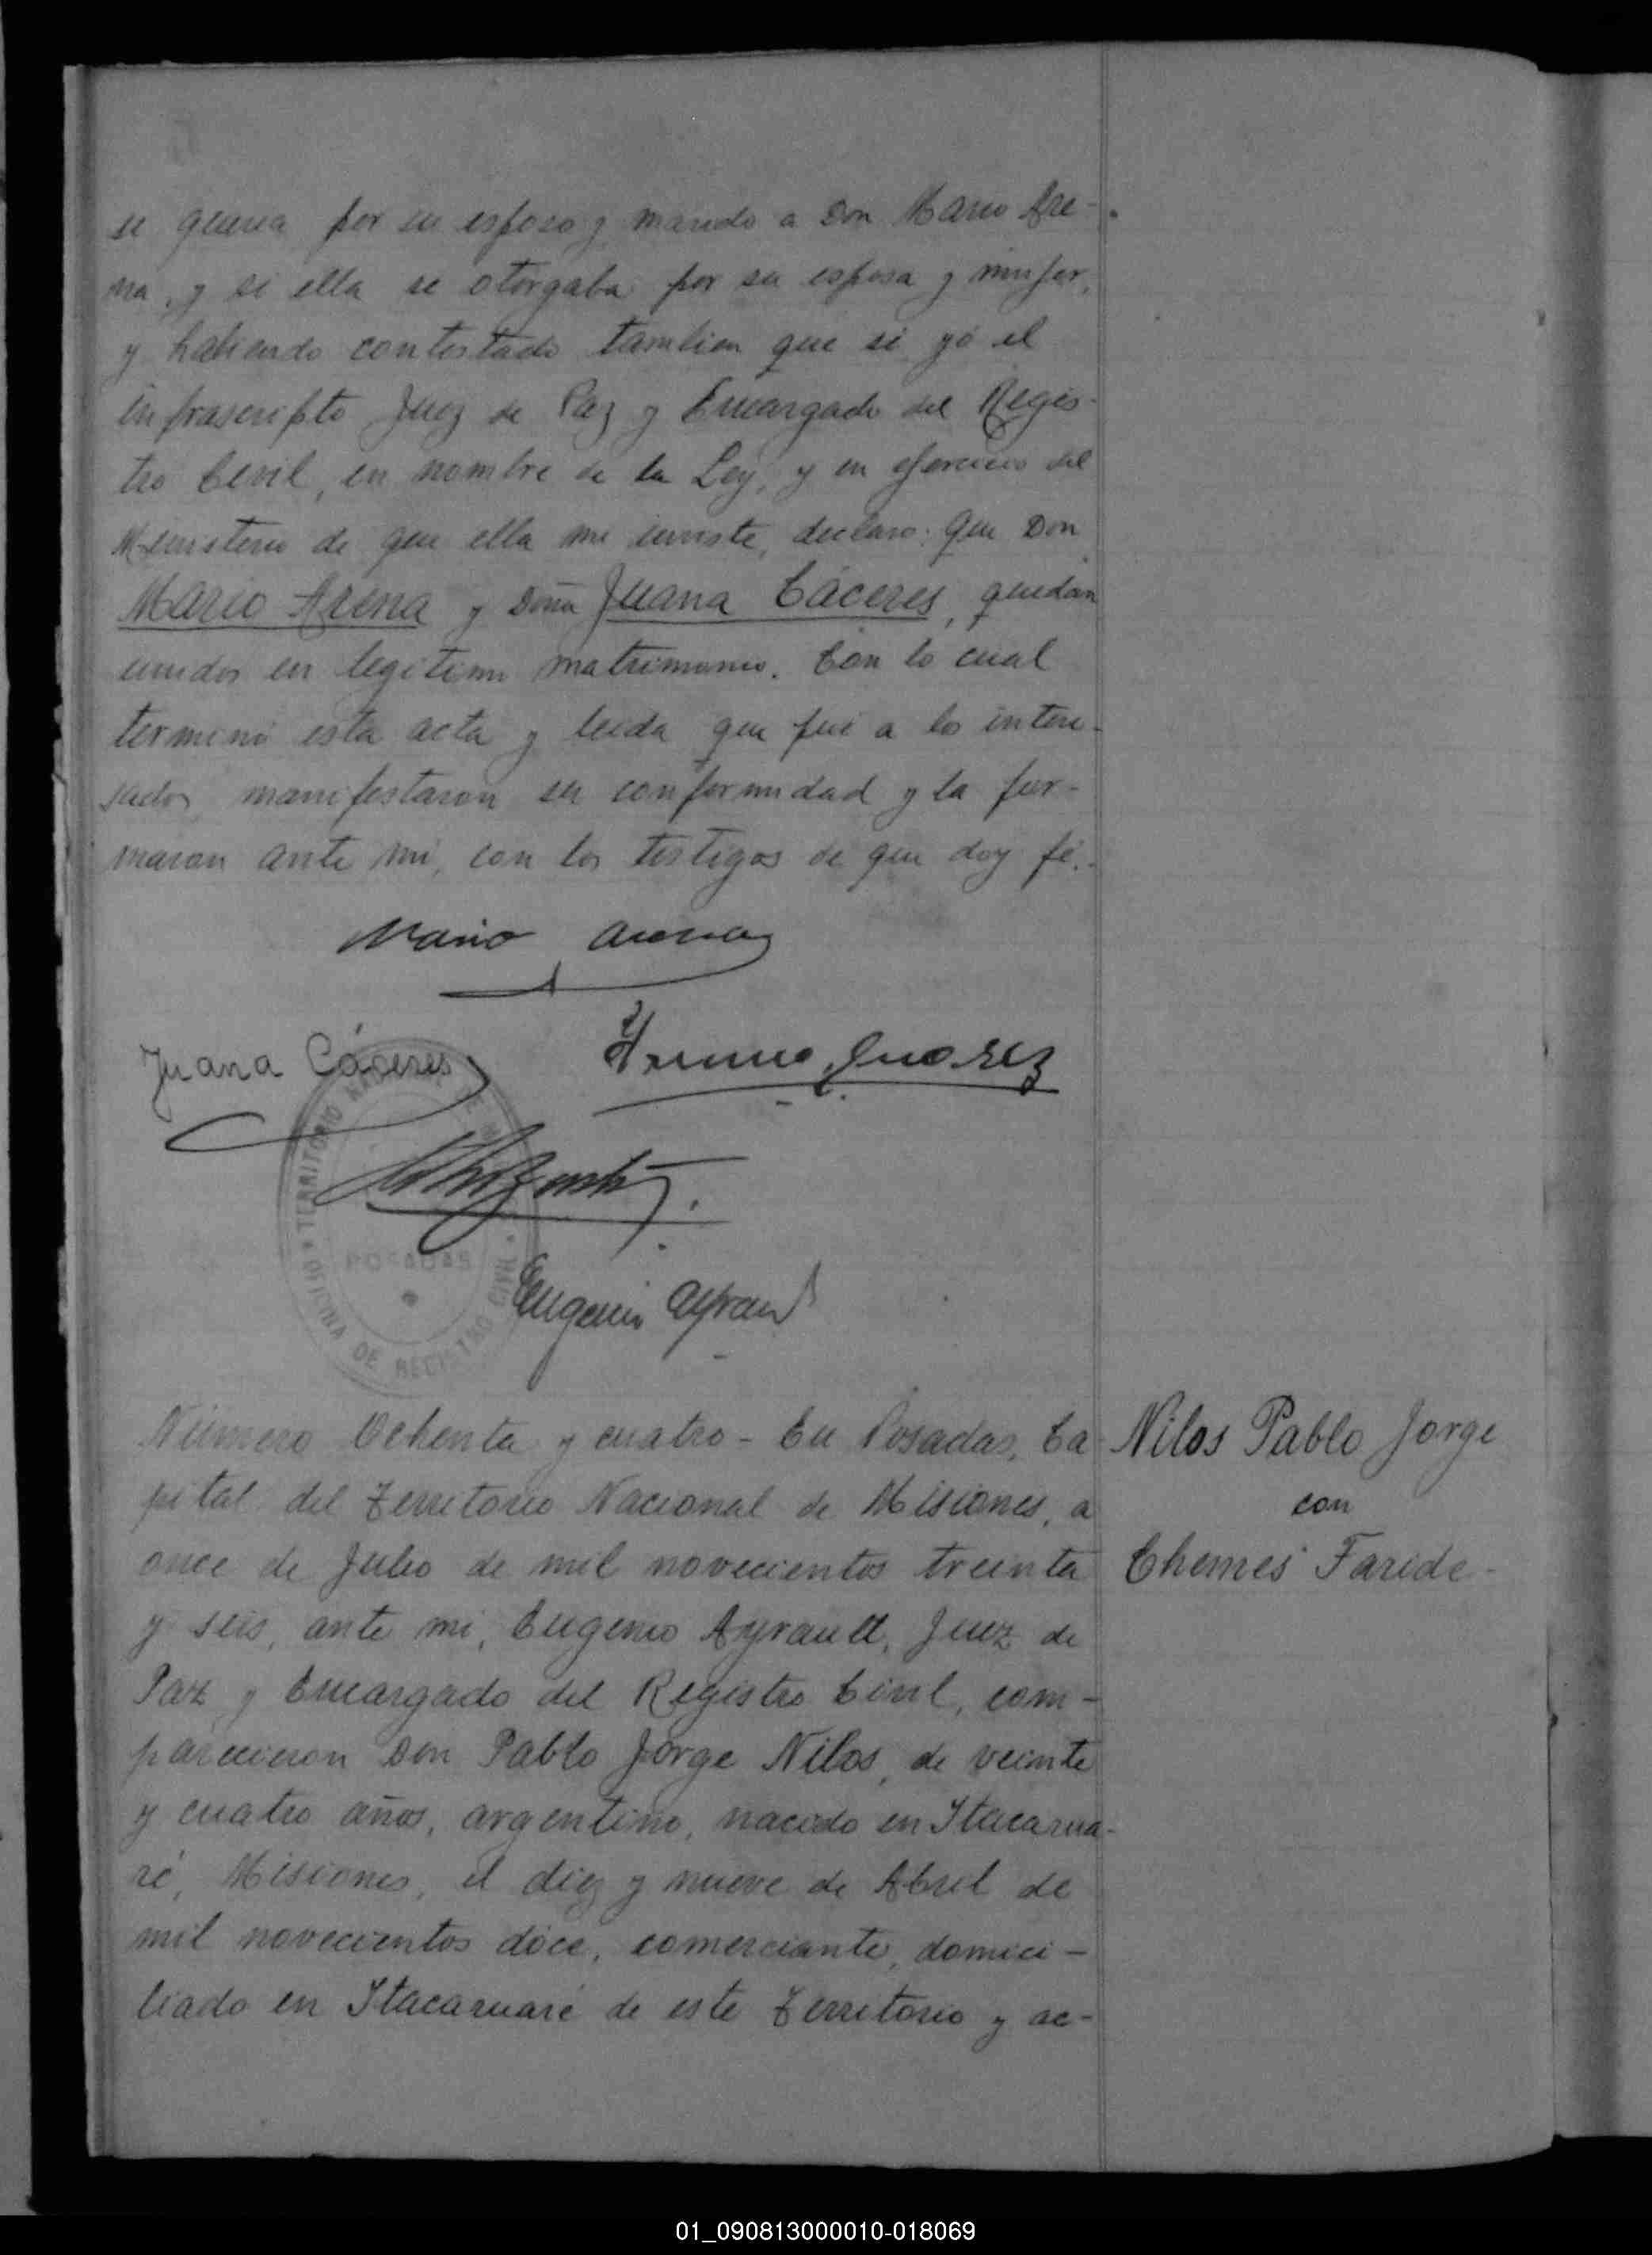 se queria por su esposo y marido a Don Mario Are-
na, y si ella se otorgaba por su esposa y mujer,
y habiendo contestado tambien que si yó el
infrascripto Juez de Paz y Encargado del Regis-
tro Civil, en nombre de la Ley, y en ejercicio del
Ministerio de que ella me inviste, declaro: Que Don
Mario Arena y Doña Juana Cáceres, quedan
unidos en legitimo matrimonio. Con lo cual
terminó esta acta y leida que fué a los intere-
sados, manifestaron su conformidad y la fir-
maron ante mi, con los testigos de que doy fé.-
Mario Arena
Juana Cáceres
Juarez
TERRITORIO NACIONAL DE
POSADAS
OFICINA DE REGISTRO CIVIL
Eugenio Ayrault
Número Ochenta y cuatro - En Posadas, Ca-
pital del Territorio Nacional de Misiones, a
once de Julio de mil novecientos treinta
y seis, ante mi, Eugenio Ayrault, Juez de
Paz y Encargado del Registro Civil, com-
parecieron Don Pablo Jorge Nilos, de veinte
y cuatro años, argentino, nacido en Itacarua-
ré, Misiones, el diez y nueve de Abril de
mil novecientos doce, comerciante, domici-
liado en Itacaruaré de este Territorio y ac-
Nilos Pablo Jorge
con
Chemes Faride-
01_090813000010-018069